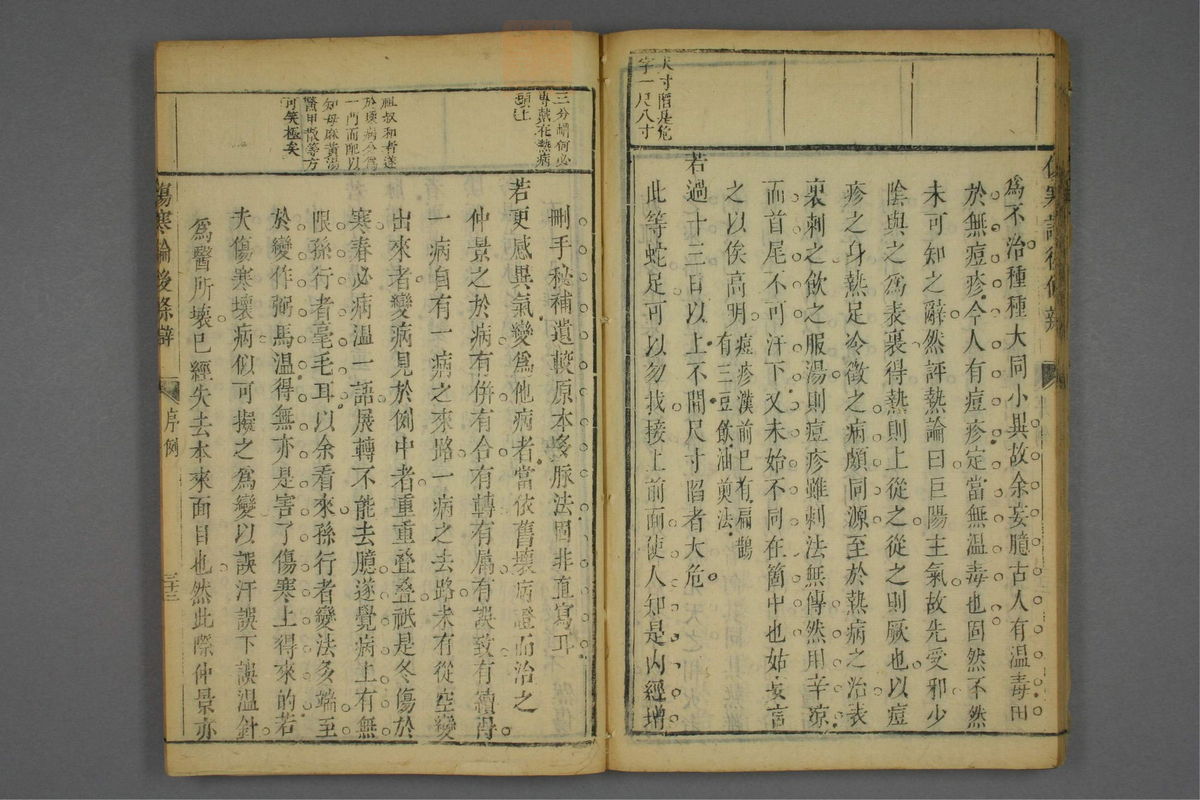 尺寸陷是危
字一尺八寸
為不治種種大同小異故余妄臆古人有溫毒毋
於無痘疹今人有痘疹定當無溫毒也固然不然
未可知之辭然評熱論曰巨陽主氣故先受邪少
陰與之為表裏得熱則上從之從之則厥也以痘
疹之身熱足冷徵之病頗同源至於熱病之治表
裏刺之飲之服湯則痘疹雖刺法無傳然用辛涼
而首尾不可汗下又未始不同在箇中也姑妄言
之以俟高明
痘疹漢前已有扁鵲
有三豆飲油煎法
若過十三日以上不間尺寸陷者大危
此等蛇足可以勿找接上前面使人知是內經增
三分胡何必
專禁在熱病
頭上
祖叔和者遂
於壞病分為
一門而配以
知母麻黃湯
鱉甲散等方
可笑極矣
刪手秘補遺較原本多脈法固非直寫耳
若更感異氣變為他病者當依舊壞病證而治之
仲景之於病有併有合有轉有屬有誤致有續得
一病自有一病之來路一病之去路未有從空變
出來者變病見於例中者重重叠叠祇是冬傷於
寒春必病溫一語展轉不能去臆遂覺病上有無
限孫行者毫毛耳以余看來孫行者變法多端至
於變作弼馬溫得無亦是害了傷寒上得來的若
夫傷寒壞病似可擬之為變以誤汗誤下誤溫針
為醫所壞已經失去本來面目也然此際仲景亦
傷寒論後條辯
序例
三十三